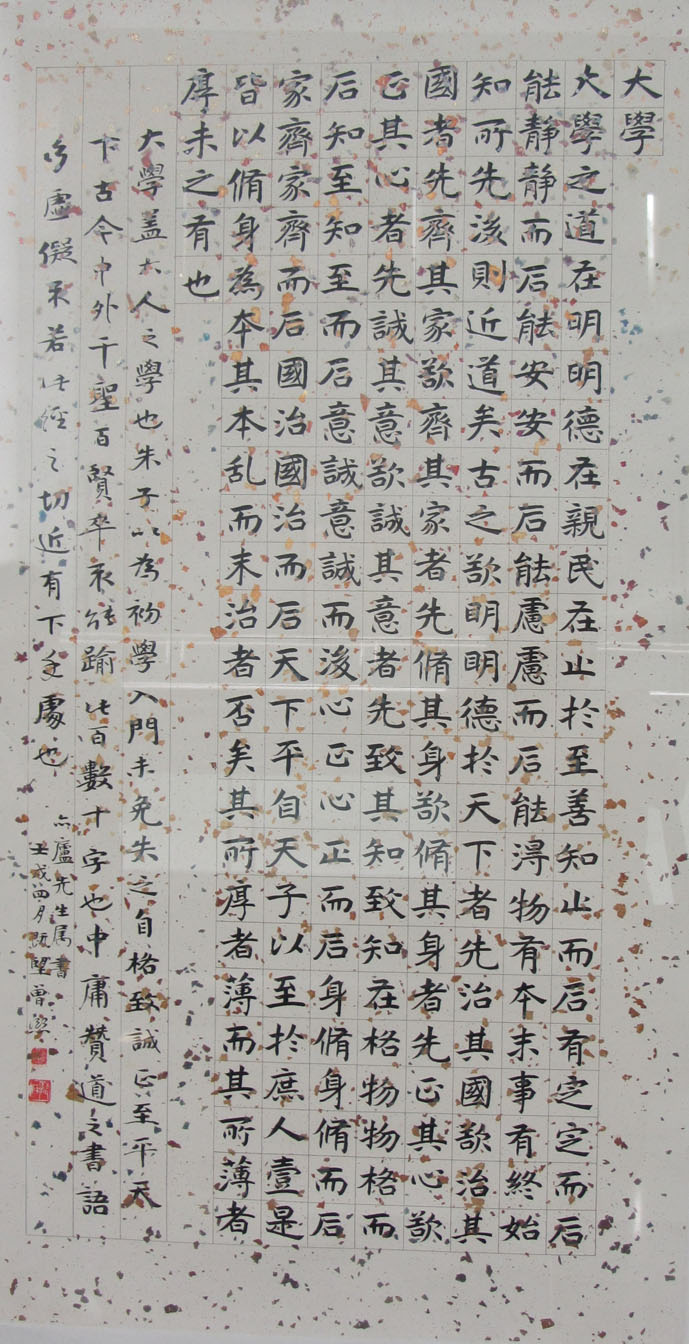 大學
大學之道在明明德在親民在止於至善知止而后有定定而后
能靜靜而后能安安而后能慮慮而后能得物有本末事有終始
知所先後則近道矣古之欲明明德於天下者先治其國欲治其
國者先齊其家欲齊其家者先脩其身欲脩其身者先正其心欲
正其心者先誠其意欲誠其意者先致其知致知在格物物格而
后知至知至而后意誠意誠而後心正心正而后身脩身脩而后
家齊家齊而后國治國治而后天下平自天子以至於庶人壹是
皆以脩身為本其本乱而末治者否矣其所厚者薄而其所薄者
厚未之有也
大學蓋大人之學也朱子以為初學入門未免失之自格致誠正至平天
下古今中外千聖百賢卒未能踰此百數十字也中庸贊道之書語
多虛儗不若此經之切近有下手處也
亦廬先生属書
壬戌四月既望曾